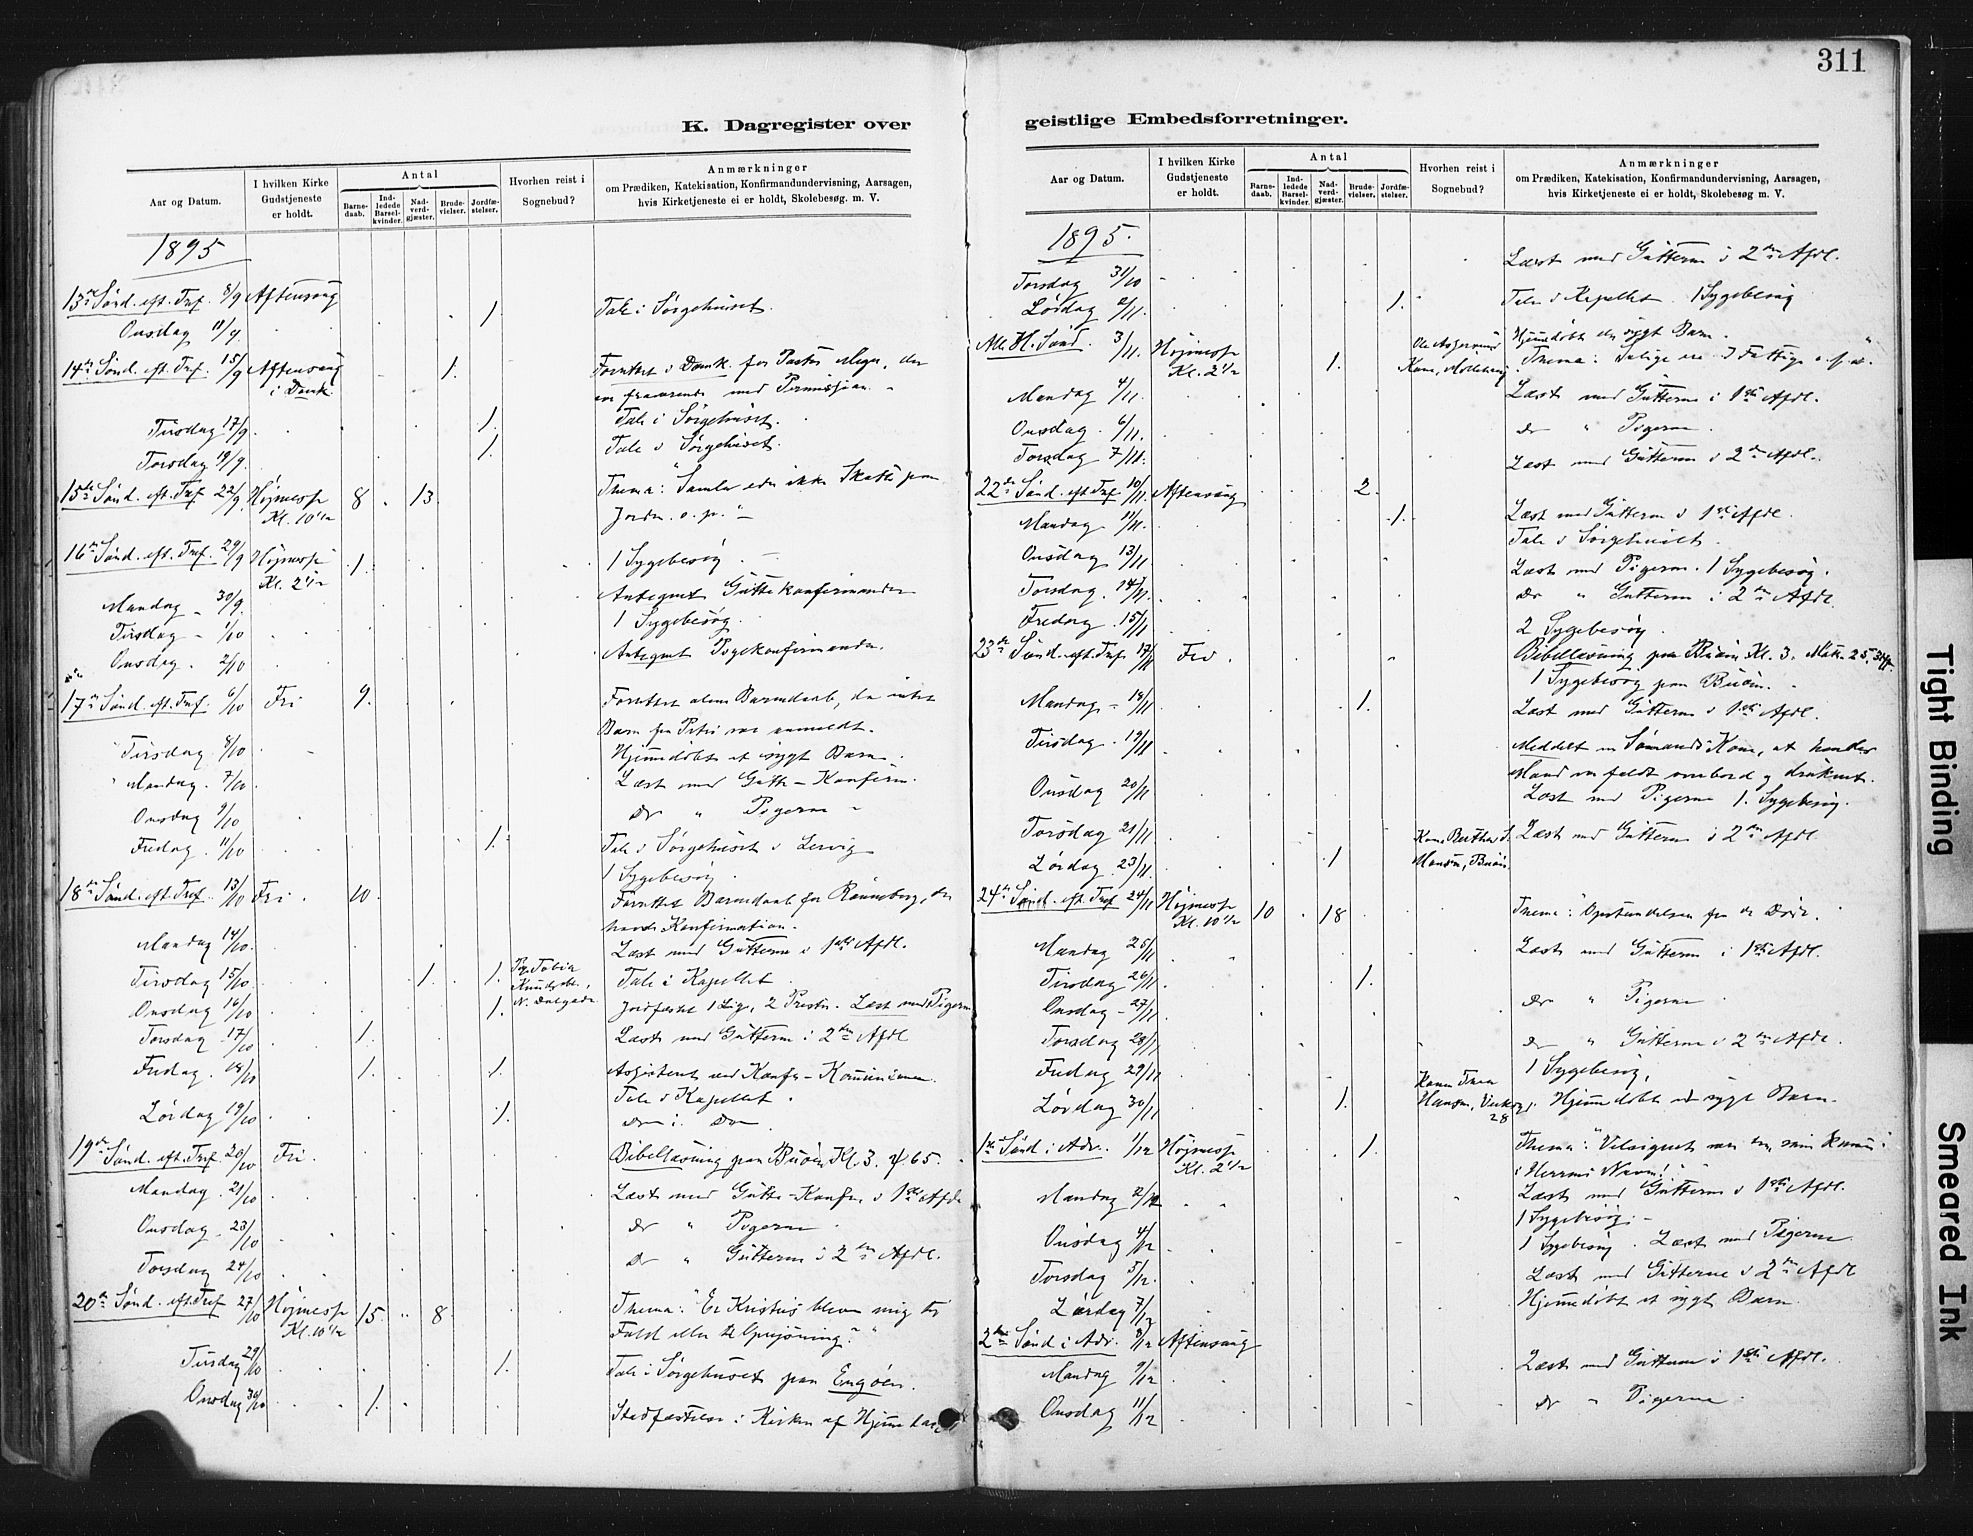 311
K. Dagregister over
Aar og Datum.
I hvilken Kirke Gudstjeneste er holdt.
Antal
Barne-daab.
Ind-ledede Barsel-kvinder.
Nad-verd-gjæster.
Brude-vielser.
Jordfæ-stelser.
Hvorhen reist i Sognebud?
Anmærkninger
om Prædiken, Katekisation, Konfirmandundervisning, Aarsagen,
hvis Kirketjeneste ei er holdt, Skolebesøg. m. V.
1895
13de Sønd. eft. Tref. 8/9 Aftensang
Onsdag 11/9 1. Tale i Sørgehuset.
14de Sønd. eft. Tref. 15/9 Aftensang 1. Forrettet i Domk. for Pastor Meyer, der
i Domk. er fraværende med Permission.
Tirsdag 17/9 1. Tale i Sørgehuset.
Torsdag 19/9 1. Tale i Sørgehuset.
15de Sønd. eft. Tref. 22/9 Højmesse 8 13. Thema: "Samler eder ikke Skatte paa
Kl. 10 1/2 Jorden o. s. v."
16de Sønd. eft. Tref. 29/9 Højmesse 1. 1 Sygebesøg
Kl. 2 1/2
Mandag 30/9 Antegnet Guttekonfirmander
Tirsdag 1/10 1 Sygebesøg.
Onsdag 2/10 Antegnet Pigekonfirmander.
17de Sønd. eft. Tref. 6/10 Fri 9. Forrettet alene Barnedaab, da intet
Barn fra Petri var anmeldt.
Tirsdag 8/10 Hjemmedøbt et sygt Barn.
Mandag 7/10 Læst med Gutte-Konfirm.
Onsdag 9/10 do " Pigerne
Fredag 11/10 1. Tale i Sørgehuset i Lervig
1 Sygebesøg.
18de Sønd. eft. Tref. 13/10 Fri 10. Forrettet Barnedaab for Rønneberg, der
havde Konfirmation.
Mandag 14/10 Læst med Gutterne i 1ste Afdl.
Tirsdag 15/10 1. 1. Tale i Kapellet.
Onsdag 16/10 1. Jordfæstet 1 Lig, 2 Præster. Læst med Pigerne
Torsdag 17/10 1. Læst med Gutterne i 2den Afdl
Fredag 18/10 1. 1. Assisteret ved Konf.-Kommunionen.
Tale i Kapellet.
Lørdag 19/10 1. do i do
19de Sønd. eft. Tref. 20/10 Fri. Bibellæsning paa Buøen Kl. 3. ψ 65.
Mandag 21/10 Læst med Gutte-Konf. i 1ste Afdl
Onsdag 23/10 do " Pigerne
Torsdag 24/10 do " Gutterne i 2den Afdl.
20de Sønd. eft. Tref 27/10 Højmesse 15. 8. Thema: "Er Kristus bleven mig til
Kl. 10 1/2 Fald eller til Oprejsning?"
Tirsdag 29/10 1. Tale i Sørgehuset paa Engøen.
Onsdag 30/10 1. Stadfæstelse i Kirken af Hjemmedaab
geistlige Embedsforretninger.
Aar og Datum.
I hvilken Kirke Gudstjeneste er holdt.
Antal
Barne-daab.
Ind-ledede Barsel-kvinder.
Nad-verd-gjæster.
Brude-vielser.
Jordfæ-stelser.
Hvorhen reist i Sognebud?
Anmærkninger
om Prædiken, Katekisation, Konfirmandundervisning, Aarsagen,
hvis Kirketjeneste ei er holdt, Skolebesøg m. V.
1895.
Torsdag 31/10 Læst med Gutterne i 2den Afdl.
Lørdag 2/11. 1. Tale i Kapellet. 1 Sygebesøg
Hjemmedøbt
Alle H. Sønd. 3/11. Højmesse 1. Thema: Salige ere I Fattige o. s. v.
Kl. 2 1/2
Mandag 4/11. Læst med Gutterne i 1ste Afdl.
Onsdag 6/11. do " Pigerne.
Torsdag 7/11. Læst med Gutterne i 2den Afdl.
22de Sønd. eft. Tref 10/11. Aftensang 2.
Mandag 11/11. 1. Læst med Gutterne i 1ste Afdl.
Tale i Sørgehuset.
Onsdag 13/11 Læst med Pigerne. 1 Sygebesøg.
Torsdag 14/11. do " Gutterne i 2den Afdl.
Fredag 15/11 2 Sygebesøg.
23de Sønd. eft. Tref. 17/11 Fri. Bibellæsning paa Buøen Kl. 3.
1 Sygebesøg paa Buøen.
Mandag 18/11 1. Læst med Gutterne i 1ste Afdl.
Tirsdag 19/11 Meddelt en Sømands Kone, at hendes
Mand var faldt overbord og druknet.
Onsdag 20/11 Læst med Pigerne 1. Sygebesøg.
Torsdag 21/11 Læst med Gutterne i 2den Afdl.
Lørdag 23/11. 1 Kone Bertha S. Monsen, Buøen
24de Sønd. eft. Tref 24/11 Højmesse 10 18 Thema: "Opstandelsen fra de Døde."
Kl. 10 1/2
Mandag 25/11 Læst med Gutterne i 1ste Afdl.
Tirsdag 26/11 1.
Onsdag 27/11 do " Pigerne
Torsdag 28/11 do " Gutterne i 2den Afdl.
Fredag 29/11 1 Sygebesøg,
Lørdag 30/11 1. Hjemmedøbt et sygt Barn.
28
1ste Sønd. i Adv. 1/12 Højmesse 1. Thema: "Velsignet være han, som kommer
Kl. 2 1/2 i Herrens Navn!"
Mandag 2/12 Læst med Gutterne i 1ste Afdl.
1 Sygebesøg.
Onsdag 4/12 1 Sygebesøg. Læst med Pigerne
Torsdag 5/12. Læst med Gutterne i 2den Afdl
Lørdag 7/12 Hjemmedøbt et sygt Barn
2den Sønd. i Adv. 8/12 Aftensang
Mandag 9/12 Læst med Gutterne i 1ste Afdl.
Onsdag 11/12 do " Pigerne
Tight Binding
Smeared Ink